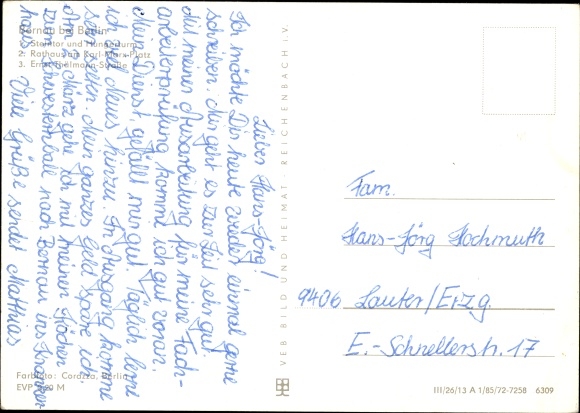 Bernau bei Berlin
1. Steintor und Hungerturm
2. Rathaus am Karl-Marx-Platz
3. Ernst-Thälmann-Straße
Lieber Hans-Jörg!
Ich möchte Dir heute wieder einmal gerne
schreiben. Mir geht es zur Zeit sehr gut.
Mit meiner Ausarbeitung für meine Fach-
arbeiterprüfung komme ich gut voran.
Mein Dienst gefällt mir gut. Täglich lerne
ich viel Neues hinzu. In Ausgang komme
selten. Mein ganzes Geld spare ich.
Am 3. März gehe ich mit meiner
zum Schwesternball nach Bernau ins Kranken-
haus. Viele Grüße sendet Matthias
Farbfoto: Corazza, Berlin
EVP 0,20 M
VEB BILD UND HEIMAT · REICHENBACH i. V.
Fam.
Hans-Jörg Hochmuth
9406 Lauter/Erzg.
E.-Schnellerstr. 17
III/26/13 A 1/85/72-7258 6309